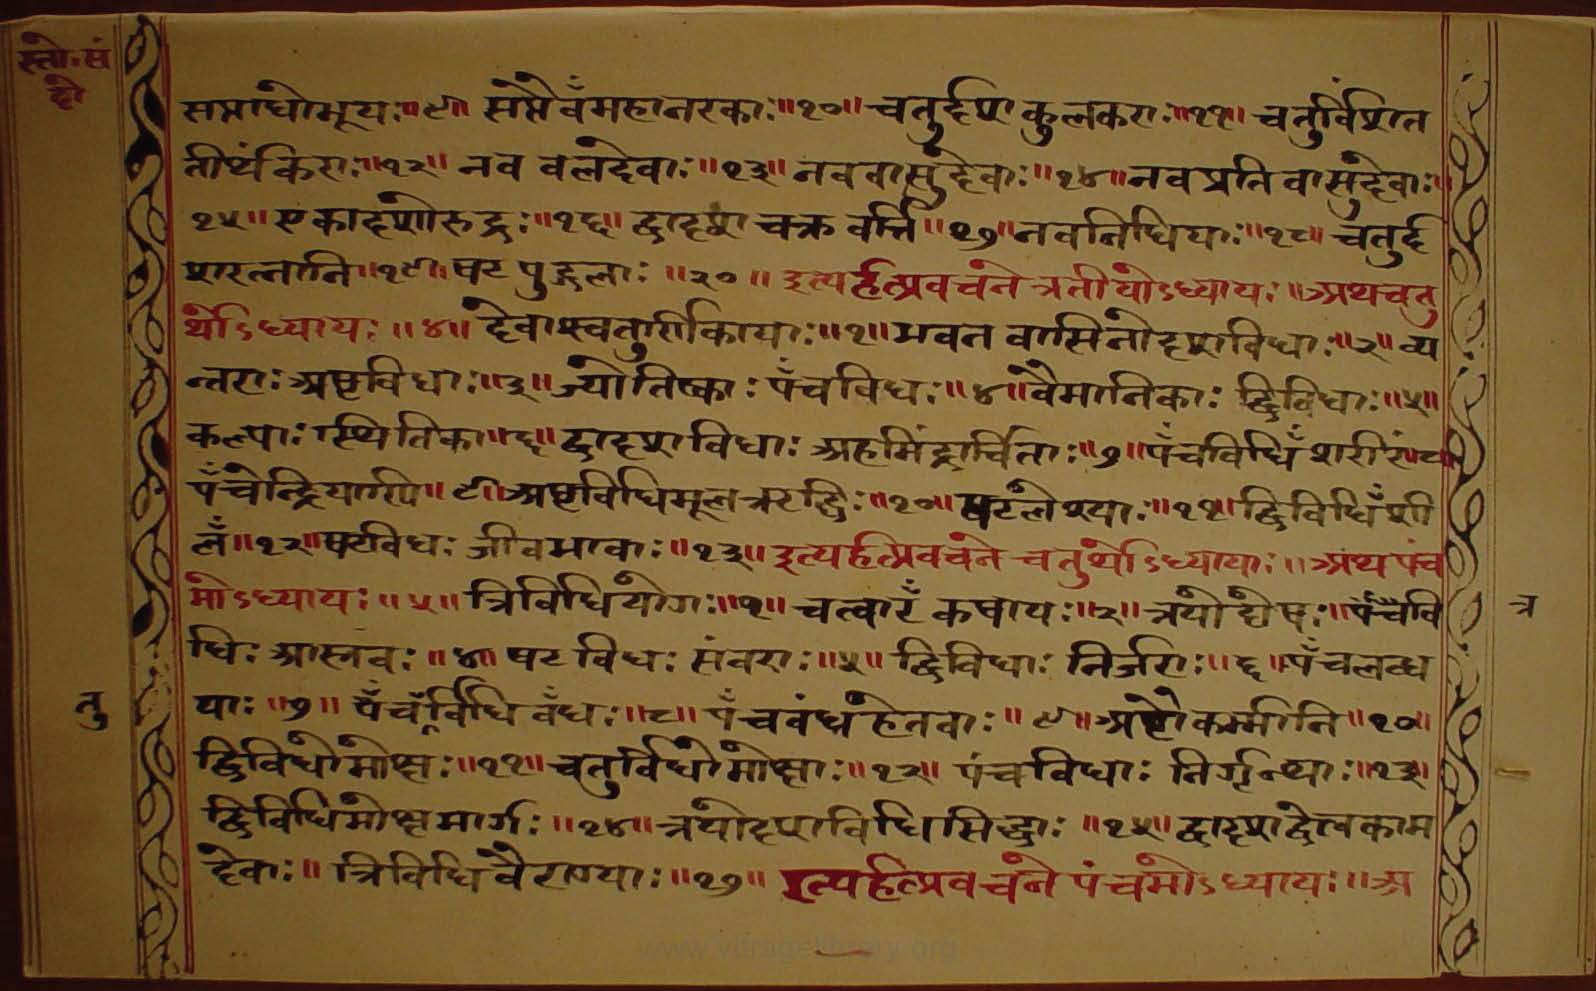 स्तो॰सं
दो
सप्ताधोभूयः॥९॥ सप्तैवँमहानरकाः॥१०॥ चतुर्द्दश कुलकराः॥११॥ चतुर्विंशति
तीर्थंकराः॥१२॥ नव वलदेवाः॥१३॥ नववासुदेवाः॥१४॥ नवप्रति वासुदेवाः॥
१५॥ एकादशोरुद्रः॥१६॥ द्वादश चक्र वर्त्ति॥१७॥ नवनिधियाः॥१८॥ चतुर्द्द
शरत्नानि॥१९॥ षट पुद्गलाः॥२०॥ इत्यर्हत्प्रवचने त्रतीयोऽध्यायः॥ अथ चतु
र्थोऽध्यायः॥४॥ देवाश्चतुर्णिकायाः॥१॥ भवन वासिनोदशविधाः॥२॥ व्य
न्तराः अष्टविधाः॥३॥ ज्योतिष्काः पँचविधः॥४॥ वैमानिकाः द्विविधाः॥५॥
कल्पाः स्थितिका॥६॥ द्वादशविधाः अहमिंद्राश्चिताः॥७॥ पँचविधिँ शरीरं
पँचेन्द्रियाणि॥९॥ अष्टविधिमूलऋद्धिः॥१०॥ षटलेश्याः॥११॥ द्विविधिँ शी
लँ॥१२॥ षटविधः जीवभावाः॥१३॥ इत्यर्हत्प्रवचने चतुर्थोऽध्यायाः॥ अथ पंच
मोऽध्यायः॥५॥ त्रिविधियोगः॥१॥ चत्वारँ कषायः॥२॥ त्रयो द्वेषः॥ पँचवि
धिः आस्रवः॥४॥ षट विधः संवराः॥५॥ द्विविधाः निर्जराः॥६॥ पँचलब्ध
याः॥७॥ पँचँर्विधि वँधः॥८॥ पँचवंध हेतवाः॥९॥ अष्टौकर्म्मानि॥१०॥
द्विविधोमोक्षः॥११॥ चतुर्विधोमोक्षाः॥१२॥ पंचविधाः निर्ग्रन्थाः॥१३॥
द्विविधिमोक्षमार्गः॥१४॥ त्रयोदशविधि सिद्धाः॥१५॥ द्वादश कामं
देवाः॥ त्रिविधि वैराग्याः॥१७॥ इत्यर्हत्प्रवचने पंचमोऽध्यायः॥ अ
तु
त्र
www.vitragelibrary.org